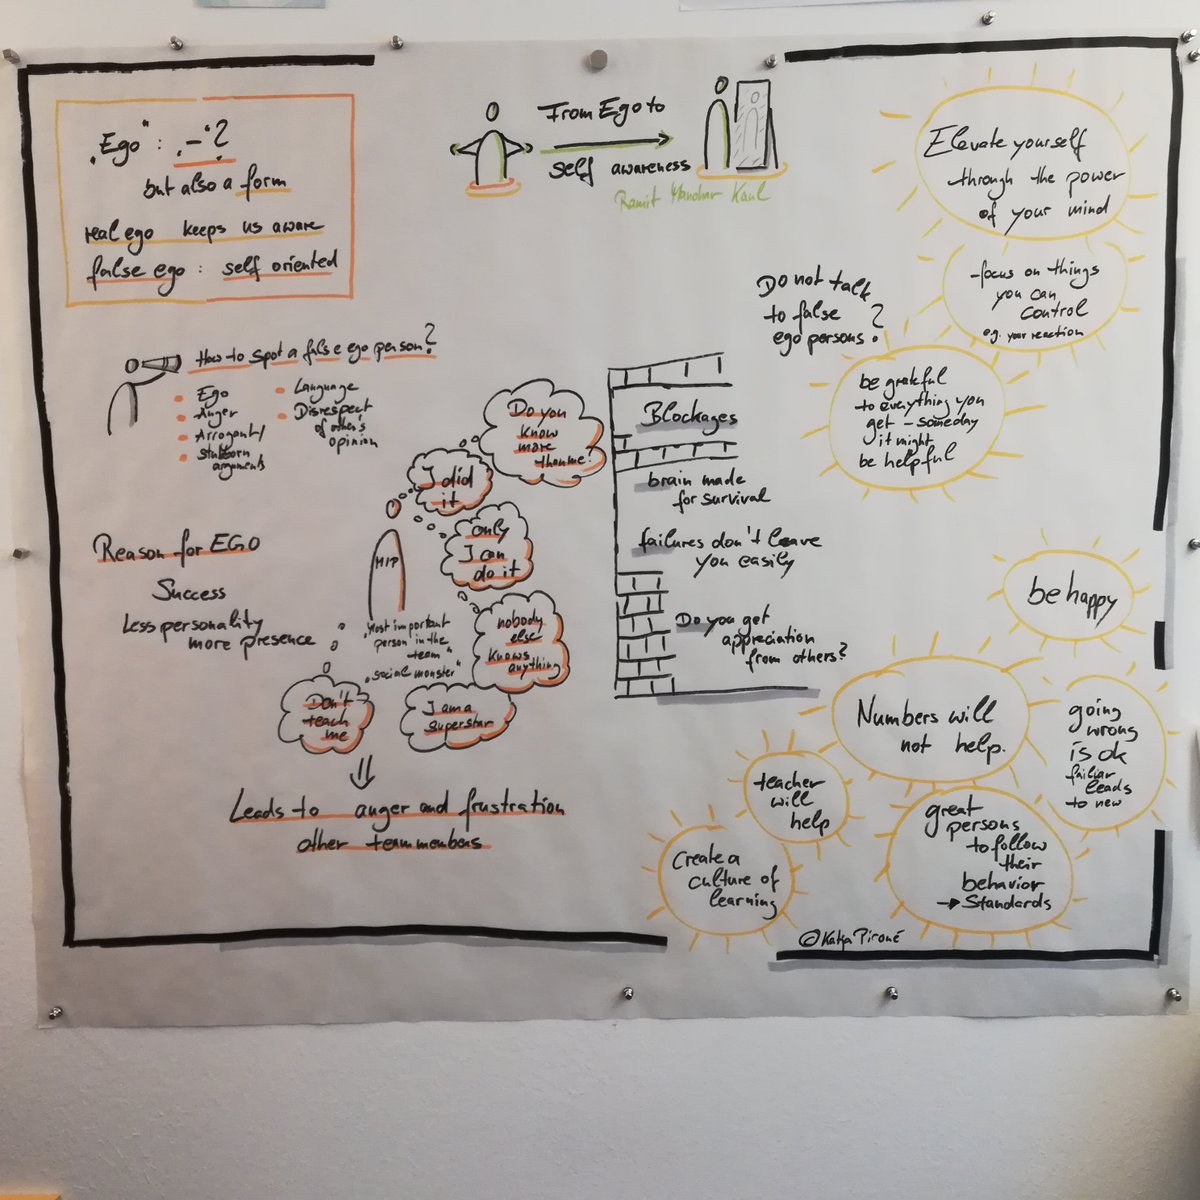 From Ego to
self awareness
Ramit Manohar Kaul
„Ego" : „-"?
but also a form
real ego keeps us aware
false ego : self oriented
How to spot a false ego person?
Ego
Anger
Arrogant/
Stubborn
arguments
Language
Disrespect
of other's
opinion
Reason for EGO
Success
Less personality
more presence
Do you
know
more
than me?
I did
it
only
I can
do it
nobody
else
knows
anything
I am a
superstar
Don't
teach
me
MIP
„Most important
person in the
team"
„social monster"
Leads to anger and frustration
other teammembers
Blockages
brain made
for survival
failures don't leave
you easily
Do you get
appreciation
from others?
Do not talk
to false
ego persons?
Elevate yourself
through the power
of your mind
-focus on things
you can
control
e.g. your reaction
be grateful
to everything you
get - someday
it might
be helpful
be happy
Numbers will
not help.
going
wrong
is ok
failiar
leads
to new
teacher
will
help
great
persons
to follow
their
behavior
→ Standards
Create a
culture of
learning
©Katja Piroué